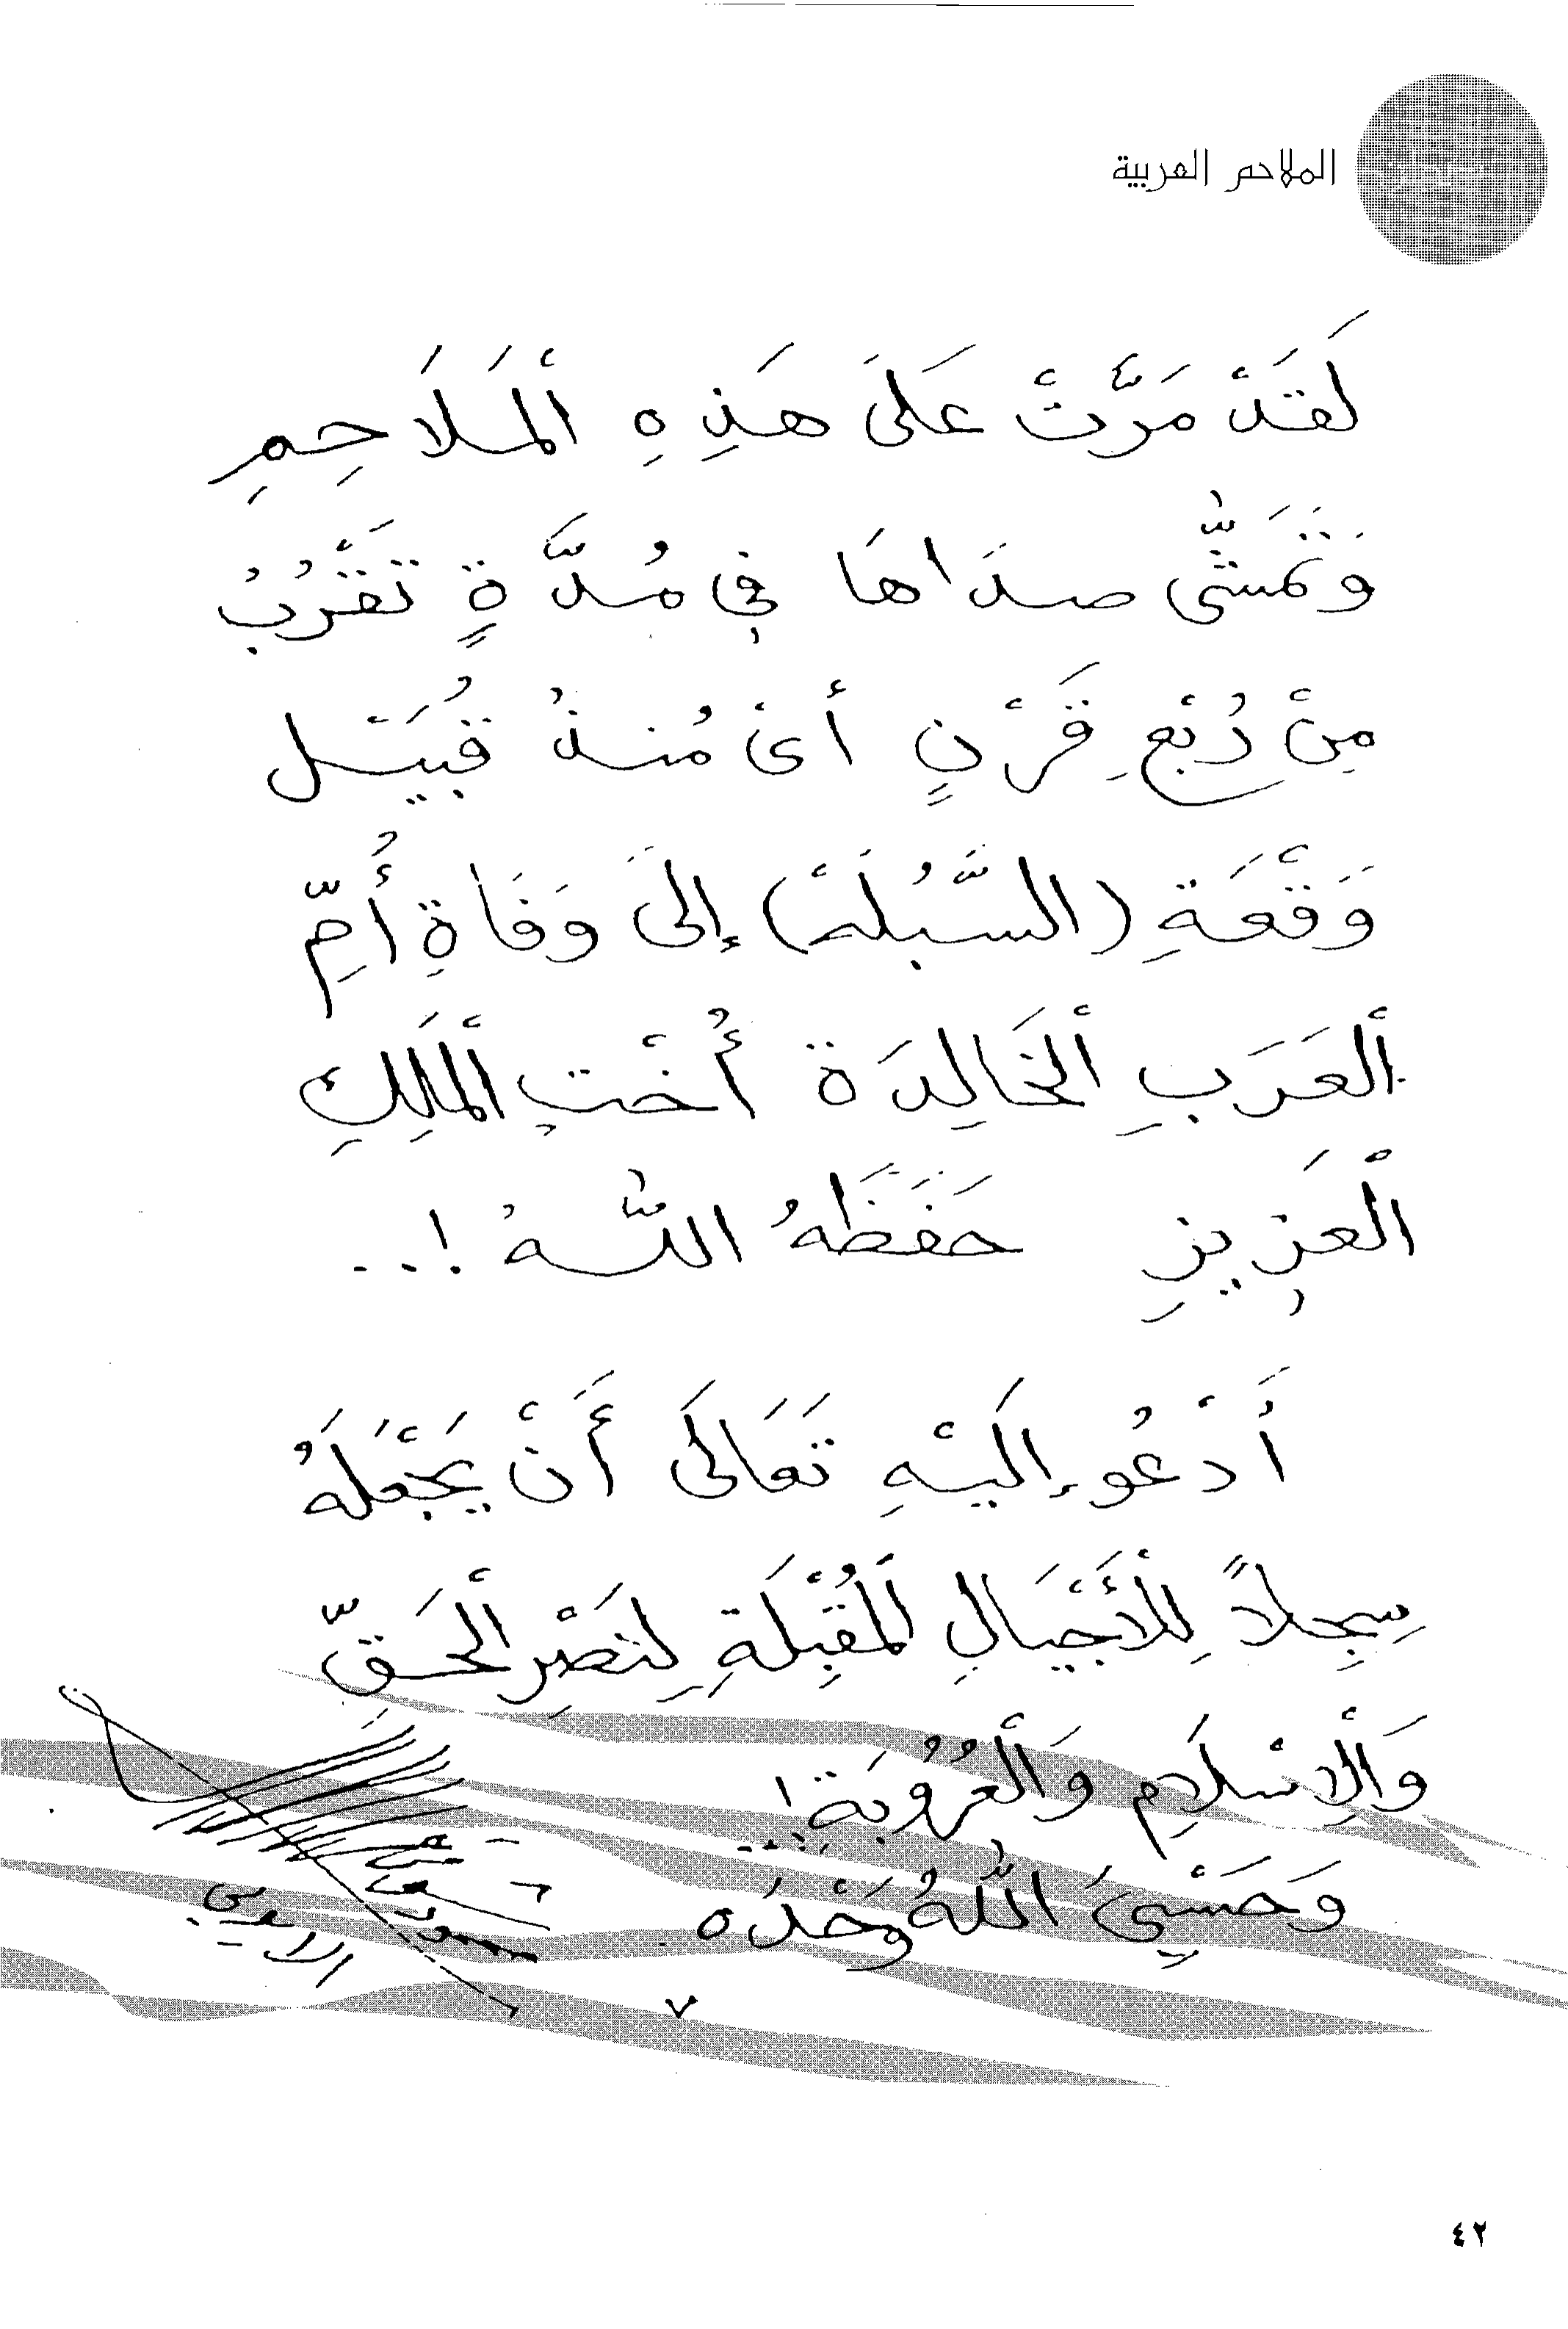 الملاحم العربية
لَقَدْ مَرَّتْ عَلَى هَذِهِ الْمَلَاحِمِ
وَتَمَشَّى صَدَاهَا فِي مُدَّةٍ تَقْرُبُ
مِنْ رُبْعِ قَرْنٍ أَىْ مُنذُ قُبَيْل
وَقْعَةِ (السَّبُلَهْ) إِلَى وَفَاةِ أُمِّ
الْعَرَبِ الْخَالِدَة أُخْتِ الْمَلِكِ
الْعَزِيزِ حَفَظَهُ اللهُ !..
أَدْعُو إِلَيْهِ تَعَالَى أَنْ يَجْعَلَهُ
سِجِلاً لِلْأَجْيَالِ الْمُقْبِلَةِ لِنَصْرِ الْحَقِّ
وَالْإِسْلَامِ وَالْعُرُوبَةِ !..
وَحَسْبِيَ اللهُ وَحْدَه
٧
٤٢